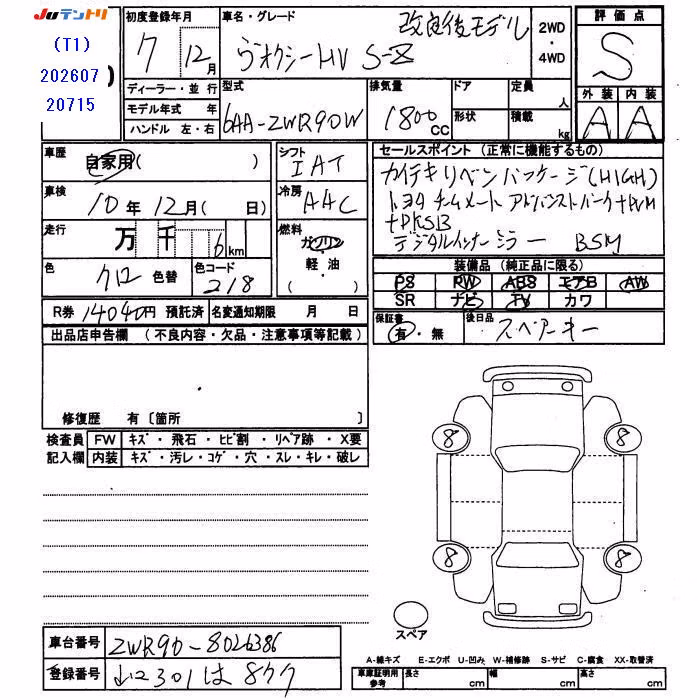 JUテントリ
(T1)
202607
20715
初度登録年月
7 12月
車名・グレード
改良後モデル
ヴォクシーHV S-Z
2WD
・
4WD
評価点
S
外装 内装
A A
ディーラー・並行
モデル年式 年
ハンドル 左・右
型式
6AA-ZWR90W
排気量
1800cc
ドア
形状
定員
人
積載
kg
車歴
自家用( )
シフト
IAT
車検
10年12月( 日)
冷房
AAC
走行
万 千 6km
燃料
ガソリン
軽・油
( )
色
クロ 色替
色コード
218
R券 14040円 預託済
名変通知期限 月 日
セールスポイント (正常に機能するもの)
カイテキリベンパッケージ(HIGH)
トヨタチームメート アドバンストパーク+PVM
+PKSB
デジタルインナーミラー BSM
装備品 (純正品に限る)
PS RW ABS エアB AW
SR ナビ TV カワ
保証書
有・無
後日品
スペアーキー
出品店申告欄 (不良内容・欠品・注意事項等記載)
修復歴 有〔箇所 〕
検査員
記入欄
FW キズ・飛石・ヒビ割・リペア跡・X要
内装 キズ・汚レ・コゲ・穴・スレ・キレ・破レ
8 8
8 8
スペア
車台番号 ZWR90-8026386
登録番号
301は877
A-線キズ E-エクボ U-凹み W-補修跡 S-サビ C-腐食 XX-取替済
車庫証明用
参考
長さ cm 幅 cm 高さ cm